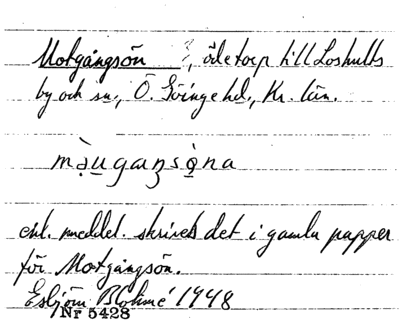 Motgångsön ?, ödetorp till Loshults
by och sn., Ö. Göinge hd., Kr. län.
mạ̀u̲gaŋsò̲na
enl. meddel. skrives det i gamla papper
för Motgångsön.
Esbjörn Blohmé 1948
Nr 5428